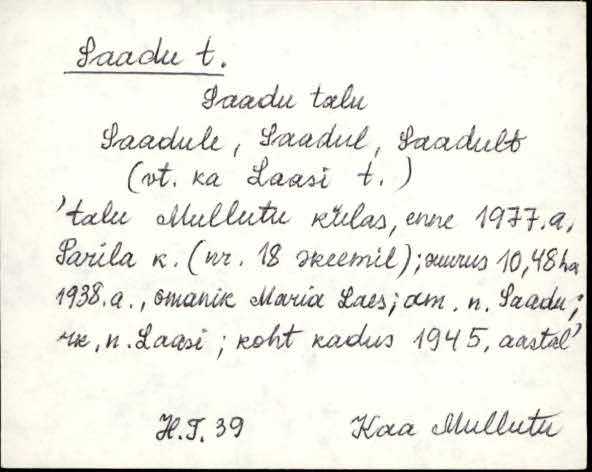 Saadu t.
Saadu talu
Saadule, Saadul, Saadult
(vt. ka Laasi t.)
'talu Mullutu külas, enne 1977.a,
Parila k. (nr. 18 skeemil); suurus 10,48 ha
1938.a., omanik Maria Laes; am. n. Saadu;
rk. n. Laasi; koht kadus 1945, aastal'
H.T. 39 Kaa Mullutu